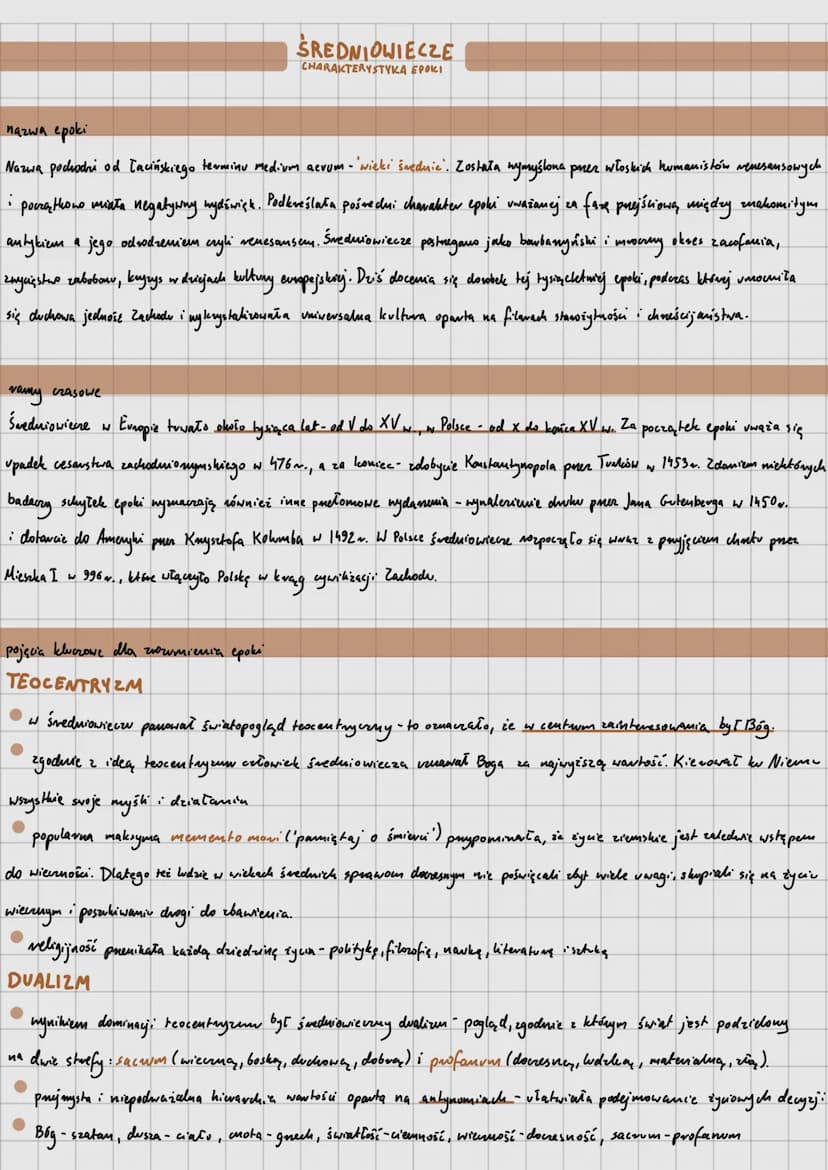 ŚREDNIOWIECZE
CHARAKTERYSTYKA EPOKI
nazwa epoki
Nazwa pochodzi od łacińskiego terminu medium aevum - 'wieki średnie'. Została wymyślona przez włoskich humanistów renesansowych
i początkowo miała negatywny wydźwięk. Podkreślała pośredni charakter epoki uważanej za fazę przejściową między znakomitym
antykiem a jego odrodzeniem czyli renesansem. Średniowiecze postrzegano jako barbarzyński i mroczny okres zacofania,
zwycięstwo zabobonu, kryzys w dziejach kultury europejskiej. Dziś docenia się dorobek tej tysiącletniej epoki, podczas której umocniła
się duchowa jedność Zachodu i wykrystalizowała uniwersalna kultura oparta na filarach starożytności i chrześcijaństwa.
ramy czasowe
Średniowiecze w Europie trwało około tysiąca lat - od V do XV w., w Polsce - od X do końca XV w. Za początek epoki uważa się
upadek cesarstwa zachodniorzymskiego w 476 r., a za koniec - zdobycie Konstantynopola przez Turków w 1453 r. Zdaniem niektórych
badaczy schyłek epoki wyznaczają również inne przełomowe wydarzenia - wynalezienie druku przez Jana Gutenberga w 1450 r.
i dotarcie do Ameryki przez Krzysztofa Kolumba w 1492 r. W Polsce średniowiecze rozpoczęło się wraz z przyjęciem chrztu przez
Mieszka I w 996 r., które włączyło Polskę w krąg cywilizacji Zachodu.
pojęcia kluczowe dla zrozumienia epoki
TEOCENTRYZM
w średniowieczu panował światopogląd teocentryczny - to oznaczało, że w centrum zainteresowania był Bóg.
zgodnie z ideą teocentryzmu człowiek średniowiecza uznawał Boga za najwyższą wartość. Kierował ku Niemu
wszystkie swoje myśli i działania
popularna maksyma memento mori ('pamiętaj o śmierci') przypominała, że życie ziemskie jest zaledwie wstępem
do wieczności. Dlatego też ludzie w wiekach średnich sprawom doczesnym nie poświęcali zbyt wiele uwagi, skupiali się na życiu
wiecznym i poszukiwaniu drogi do zbawienia.
religijność przenikała każdą dziedzinę życia - politykę, filozofię, naukę, literaturę i sztukę
DUALIZM
wynikiem dominacji teocentryzmu był średniowieczny dualizm - pogląd, zgodnie z którym świat jest podzielony
na dwie strefy: sacrum (wieczną, boską, duchową, dobrą) i profanum (doczesną, ludzką, materialną, złą).
przejrzysta i niepodważalna hierarchia wartości oparta na antynomiach - ułatwiała podejmowanie życiowych decyzji:
Bóg - szatan, dusza - ciało, cnota - grzech, światłość - ciemność, wieczność - doczesność, sacrum - profanum